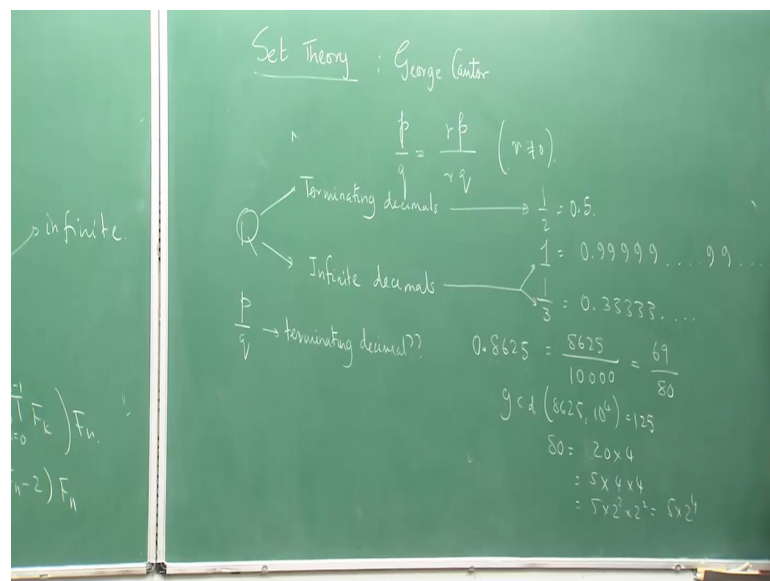 infinite.
F_k ) F_n.
-2) F_n
Set Theory : George Cantor
p/q = rp/rq (r≠0)
Q
Terminating decimals → 1/2 = 0.5.
Infinite decimals → 1 = 0.99999 .... 99 ...
1/3 = 0.33333....
p/q → terminating decimal??
0.8625 = 8625/10000 = 69/80
gcd (8625, 10^4) = 125
80 = 20×4
= 5×4×4
= 5×2^2×2^2 = 5×2^4